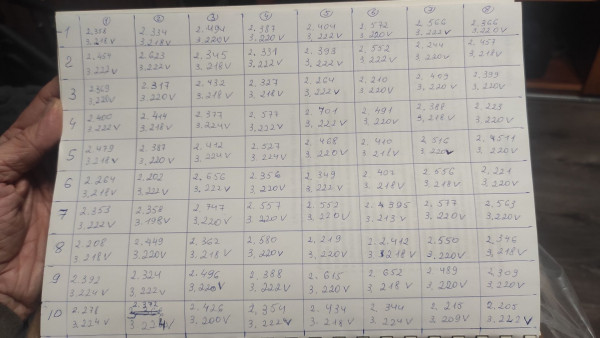 ① ② ③ ④ ⑤ ⑥ ⑦ ⑧
1 2.334 2.494 2.387 2.404 2.532 2.566 2.366
3.218V 3.218V 3.220V 3.220V 3.222V 3.220V 3.222V 3.220V
2 2.459 2.623 2.345 2.331 2.393 2.552 2.244 2.457
3.222V 3.222V 3.218V 3.218V 3.222V 3.222V 3.220V 3.218V
3 2.363 2.317 2.432 2.327 2.264 2.210 2.409 2.399
3.220V 3.220V 3.218V 3.218V 3.222V 3.220V 3.220V 3.220V
4 2.400 2.414 2.377 2.577 2.701 2.491 2.388 2.223
3.222V 3.218V 3.224V 3.222V 3.222V 3.220V 3.218V 3.220V
5 2.479 2.387 2.412 2.527 2.468 2.410 2.516
3.218V 3.220V 3.224V 3.224V 3.220V 3.218V 3.220V 3.220V
6 2.264 2.202 2.656 2.356 2.349 2.402 2.556 2.221
3.218V 3.222V 3.222V 3.220V 3.222V 3.218V 3.218V 3.220V
7 2.353 2.358 2.747 2.557 2.552 2.4395 2.577 2.563
3.222V 3.198V 3.220V 3.220V 3.220V 3.213V 3.220V 3.220V
8 2.208 2.449 2.362 2.580 2.219 2.2.412 2.550 2.396
3.218V 3.220V 3.218V 3.220V 3.220V 3.218V 3.220V 3.218V
9 2.372 2.324 2.496 2.388 2.615 2.652 2.489 2.309
3.224V 3.222V 3.220V 3.222V 3.220V 3.218V 3.220V 3.220V
10 2.278 2.372 2.426 2.354 2.434 2.344 2.215 2.205
3.224V 3.224V 3.200V 3.222V 3.218V 3.224V 3.209V 3.222V